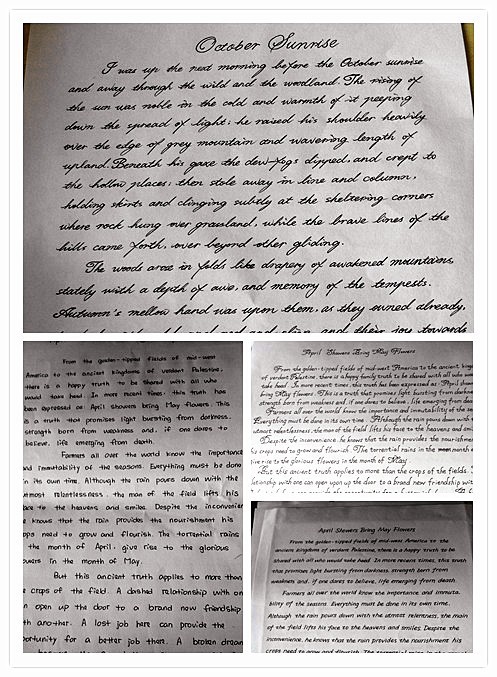 October Sunrise
I was up the next morning before the October sunrise
and away through the wild and the woodland. The rising of
the sun was noble in the cold and warmth of it peeping
down the spread of light; he raised his shoulder heavily
over the edge of grey mountain and wavering length of
upland. Beneath his gaze the dew-fogs dipped, and crept to
the hollow places; then stole away in line and column,
holding skirts and clinging subtly at the sheltering corners
where rock hung over grassland, while the brave lines of the
hills came forth, over beyond other gliding.
The woods arose in folds like drapery of awakened mountains,
stately with a depth of awe, and memory of the tempests.
Autumn's mellow hand was upon them, as they owned already,
and their joy towards
From the golden-tipped fields of mid-west
America to the ancient kingdoms of verdant Palestine,
there is a happy truth to be shared with all who
would take heed. In more recent times, this truth has
been expressed as: April showers bring May flowers. This
is a truth that promises light bursting from darkness,
strength born from weakness and, if one dares to
believe, life emerging from death.
Farmers all over the world know the importance
and immutability of the seasons. Everything must be done
in its own time. Although the rain pours down with the
utmost relentlessness, the man of the field lifts his
face to the heavens and smiles. Despite the inconvenience
knows that the rain provides the nourishment his
crops need to grow and flourish. The torrential rains
the month of April, give rise to the glorious
flowers in the month of May.
But this ancient truth applies to more than
crops of the field. A dashed relationship with one
can open up the door to a brand new friendship
with another. A lost job here can provide the
opportunity for a better job there. A broken dream
April Showers Bring May Flowers
From the golden-tipped fields of mid-west America to the ancient kingdoms
of verdant Palestine, there is a happy family truth to be shared with all who would
take heed. In more recent times, this truth has been expressed as: April showers
bring May flowers. This is a truth that promises light bursting from darkness,
strength born from weakness and, if one dares to believe, life emerging from death.
Farmers all over the world know the importance and immutability of the seasons.
Everything must be done in its own time. Although the rain pours down with the
utmost relentlessness, the man of the field lifts his face to the heavens and smiles.
Despite the inconvenience, he knows that the rain provides the nourishment
his crops need to grow and flourish. The torrential rains in the month
give rise to the glorious flowers in the month of May.
But this ancient truth applies to more than the crops of the fields.
relationship with one can open up the door to a brand new friendship with
April Showers Bring May Flowers
From the golden-tipped fields of mid-west America to the
ancient kingdoms of verdant Palestine, there is a happy truth to be
shared with all who would take heed. In more recent times, this truth
that promises light bursting from darkness, strength born from
weakness and, if one dares to believe, life emerging from death.
Farmers all over the world know the importance and immuta-
bility of the seasons. Everything must be done in its own time.
Although the rain pours down with the utmost relentness, the man
of the field lifts his face to the heavens and smiles. Despite the
inconvenience, he knows that the rain provides the nourishment his
crops need to grow and flourish. The torrential rains in the month